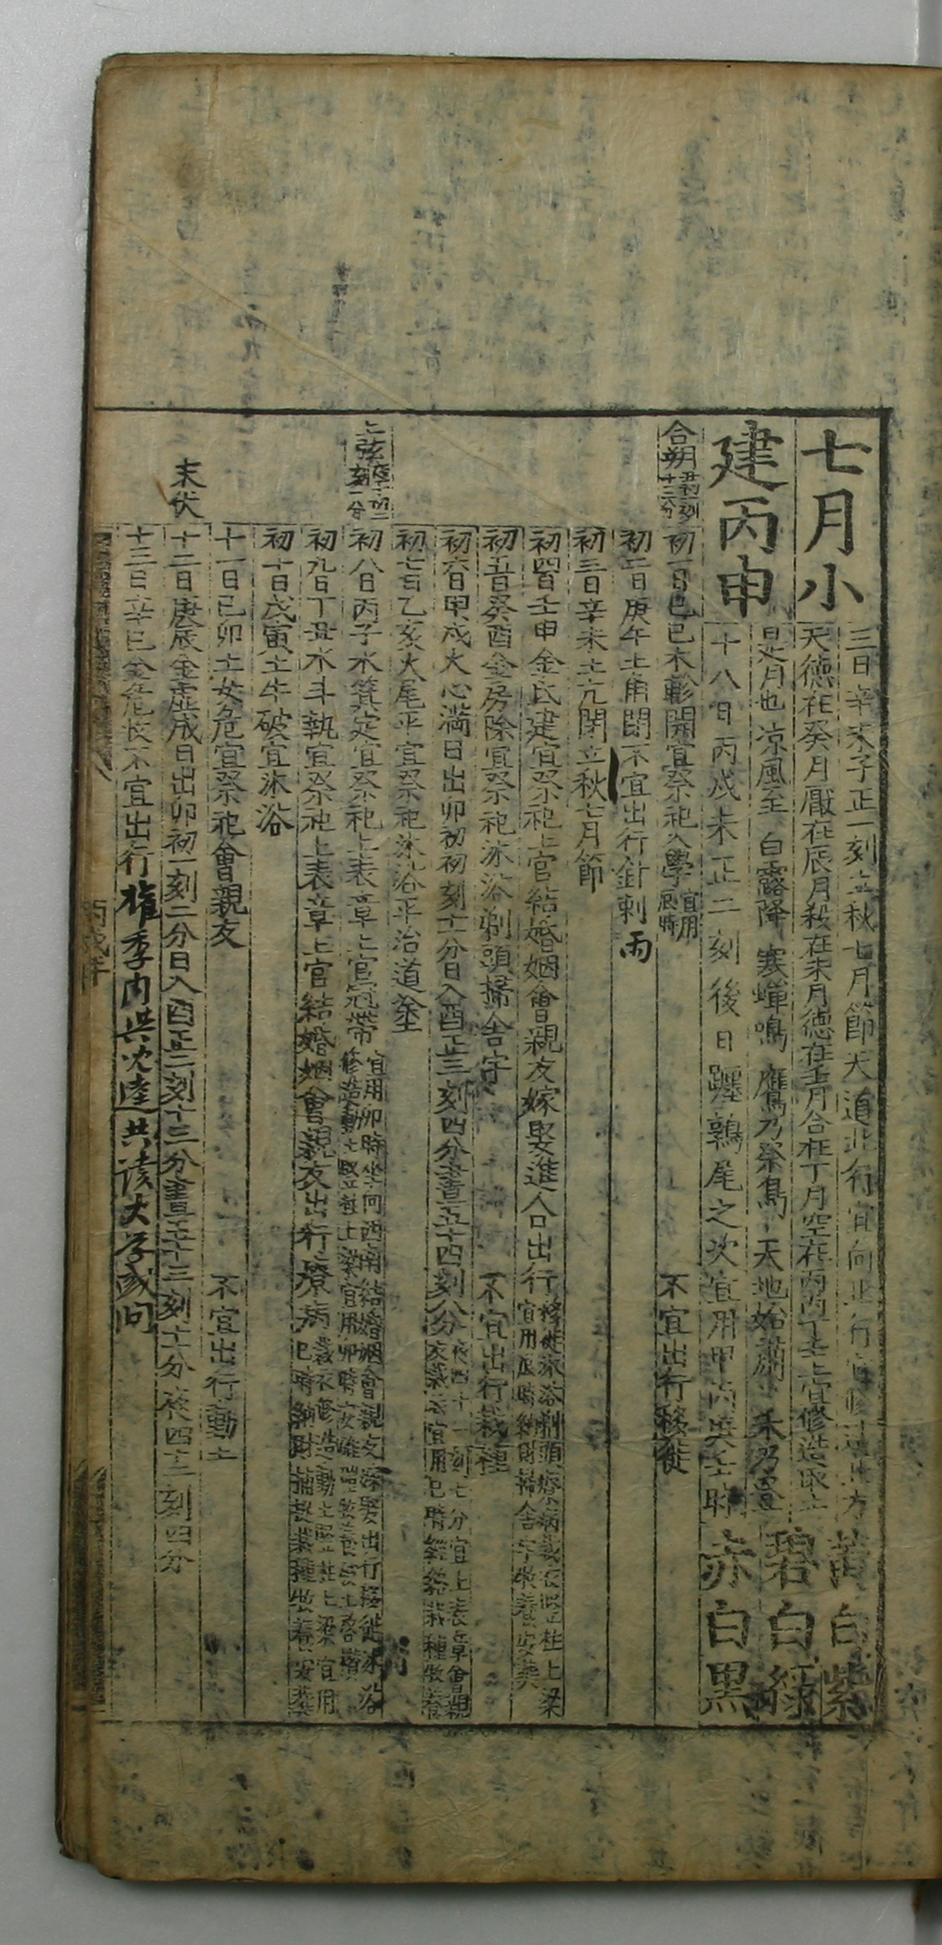 七月小
建丙申
三日辛未子正一刻立秋七月節天道北行宜向北行宜修造北方
天德在癸月厭在辰月殺在未月德在壬月合在丁月空在丙丙丁壬上宜修造取土
是月也凉風至白露降寒蟬鳴鷹乃祭鳥天地始肅禾乃登
十八日丙戌未正二刻後日躔鶉尾之次宜用甲丙庚壬時
黃白紫
碧白綠
赤白黑
合朔
初一日己巳木軫開宜祭祀入學宜用辰時 不宜出行移徙
初二日庚午土角閉不宜出行針刺 雨
初三日辛未土亢閉立秋七月節
初四日壬申金氐建宜祭祀上官結婚姻會親友嫁娶進人口出行移徙沐浴剃頭療病裁衣竪柱上梁宜用辰時納財掃舍宇牧養安葬
初五日癸酉金房除宜祭祀沐浴剃頭掃舍宇 不宜出行栽種
初六日甲戌火心滿日出卯初初刻十一分日入酉正三刻四分晝五十四刻八分夜四十一刻七分宜上表章會親友裁衣宜用巳時經絡栽種牧養
初七日乙亥火尾平宜祭祀沐浴平治道塗
上弦
初八日丙子水箕定宜祭祀上表章上官冠帶宜用卯時坐向西南結婚姻會親友嫁娶出行移徙沐浴修造動土竪柱上梁宜用卯時安碓磑牧養破土啓攢
初九日丁丑水斗執宜祭祀上表章上官結婚姻會親友出行療病裁衣修造動土竪柱上梁宜用巳時納財捕捉栽種牧養安葬
初十日戊寅土牛破宜沐浴
十一日己卯土女危宜祭祀會親友 不宜出行動土
末伏
十二日庚辰金虛成日出卯初一刻二分日入酉正二刻十三分晝五十三刻十一分夜四十二刻四分
十三日辛巳金危收不宜出行 權季內 共讀大學或問
丙戌年